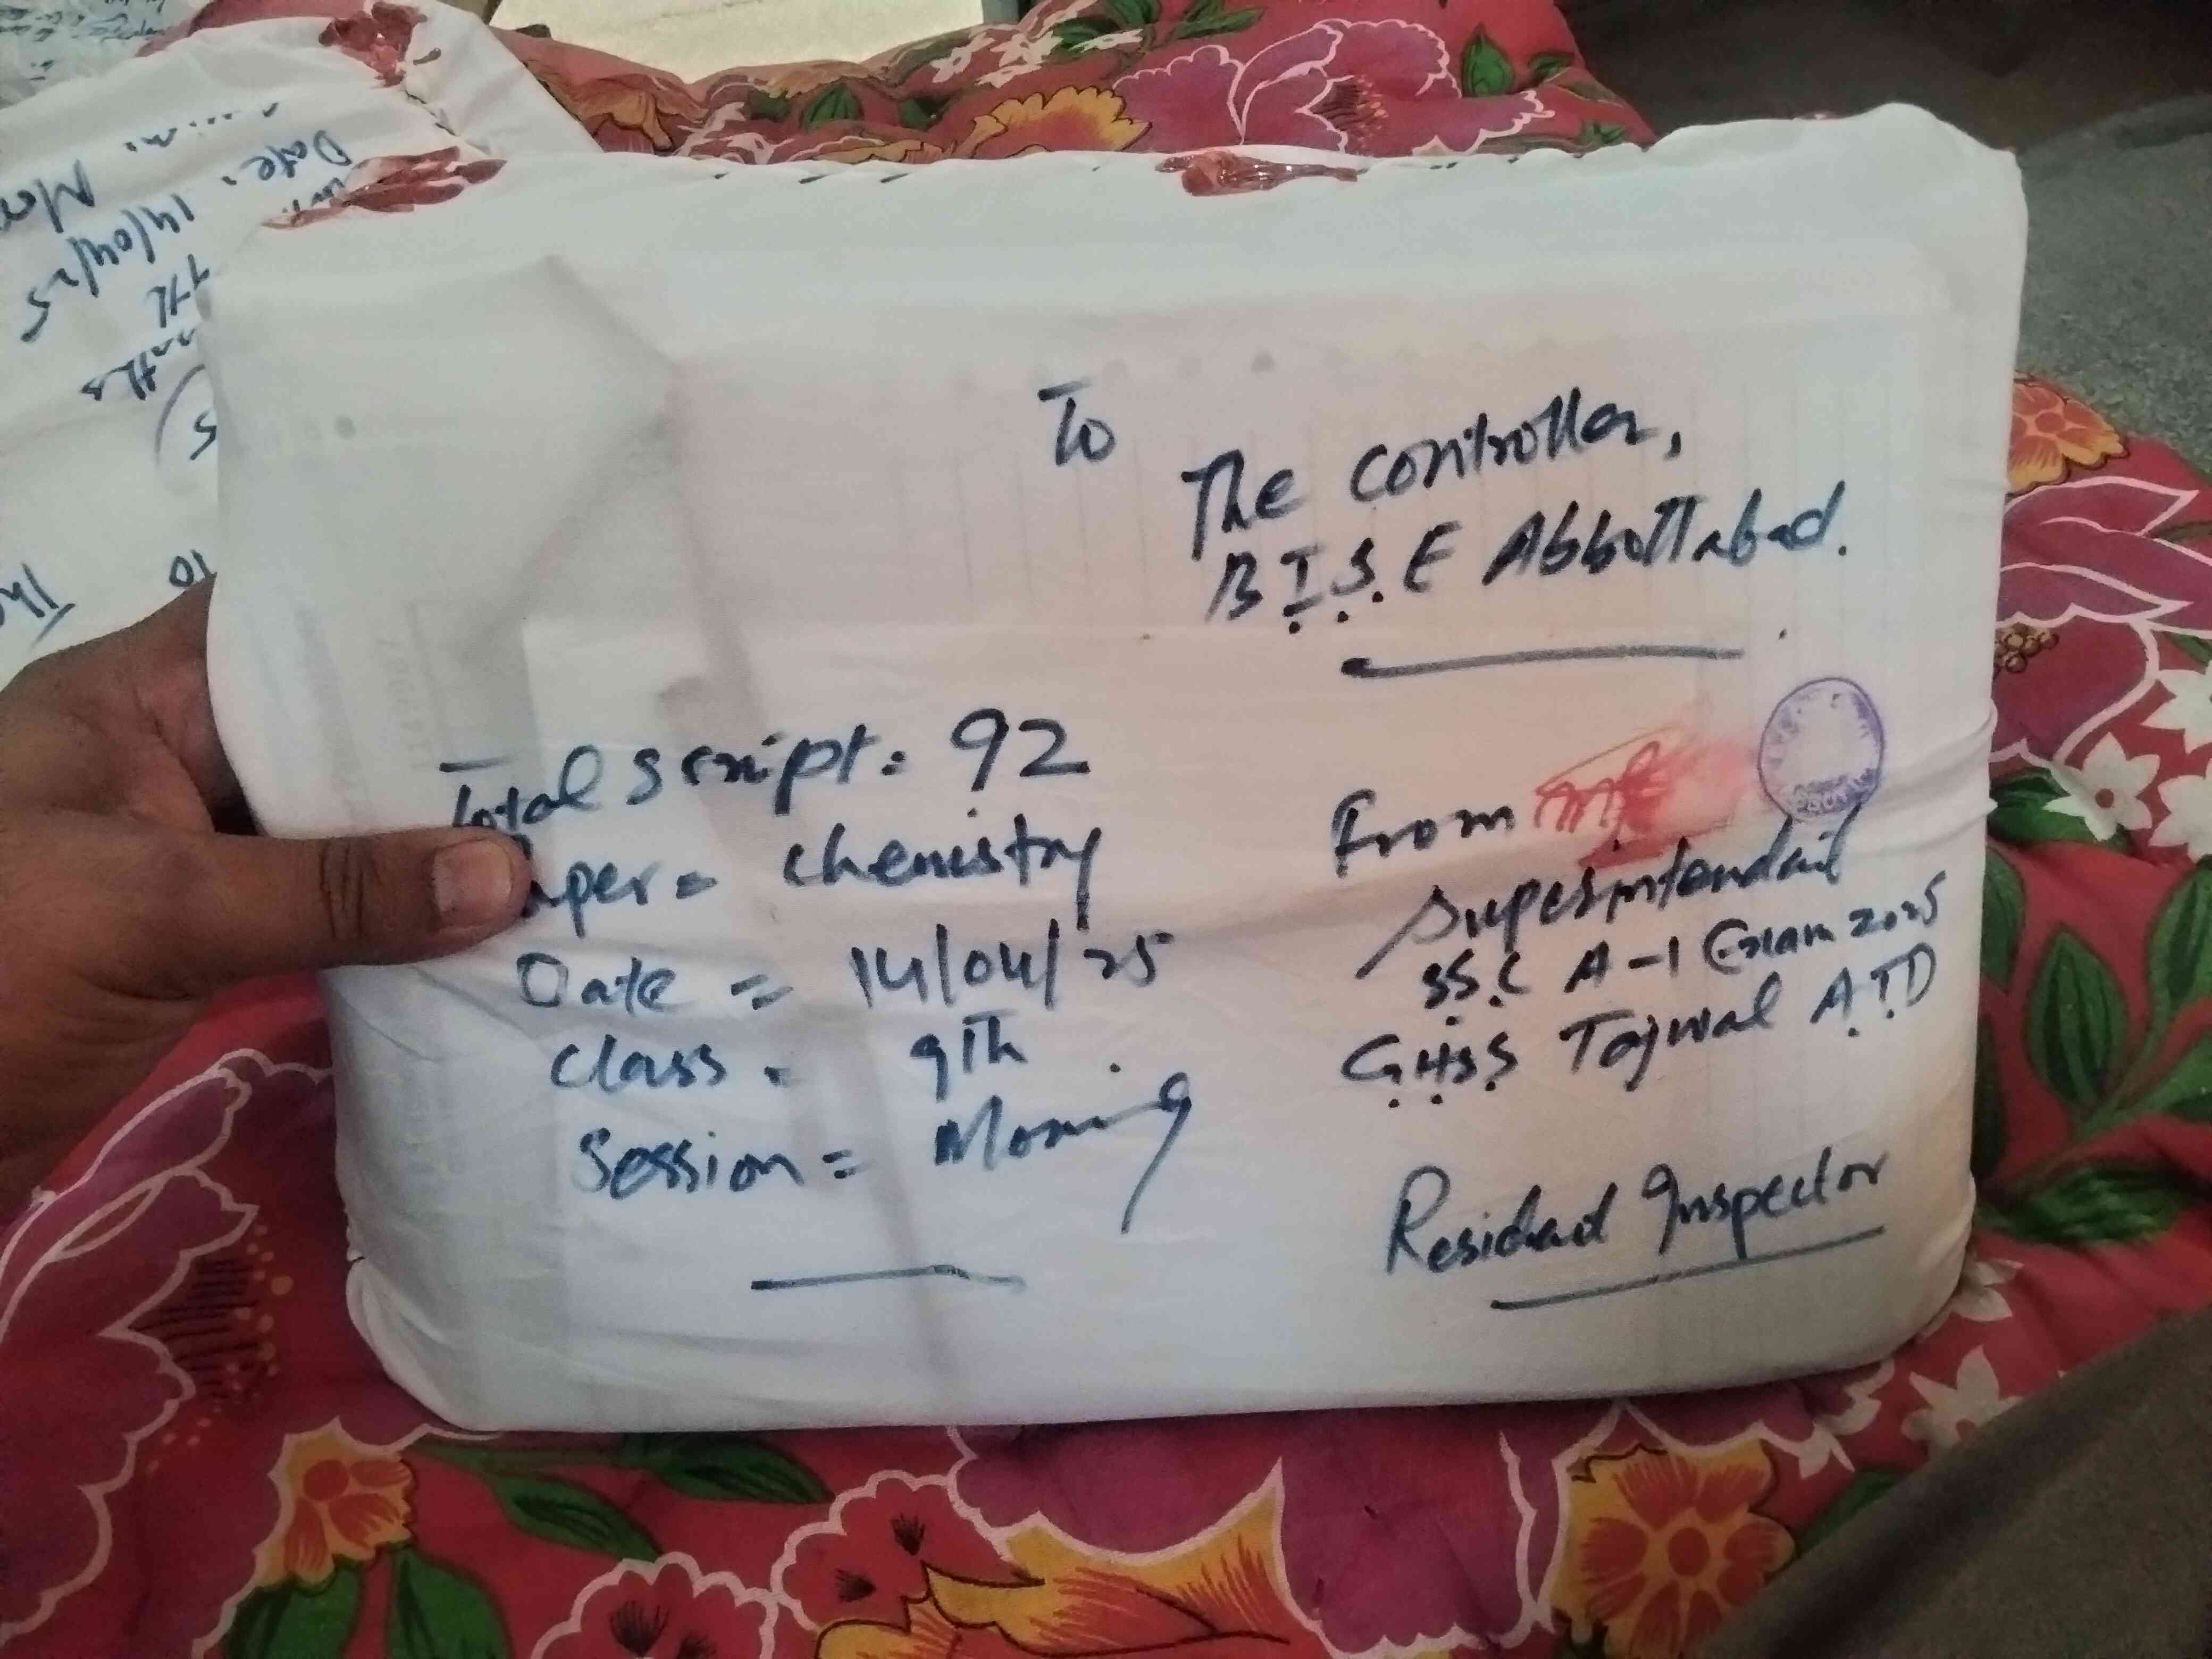 To
The Controller,
B.I.S.E Abbottabad.
Total Script = 92
Paper = Chemistry
Date = 14/04/25
Class = 9th
Session = Morning
From
Superintendent
SS.C A-1 Exam 2025
G.H.S.S Tajwal A.T.D
Resident Inspector
Date: 14/04/25